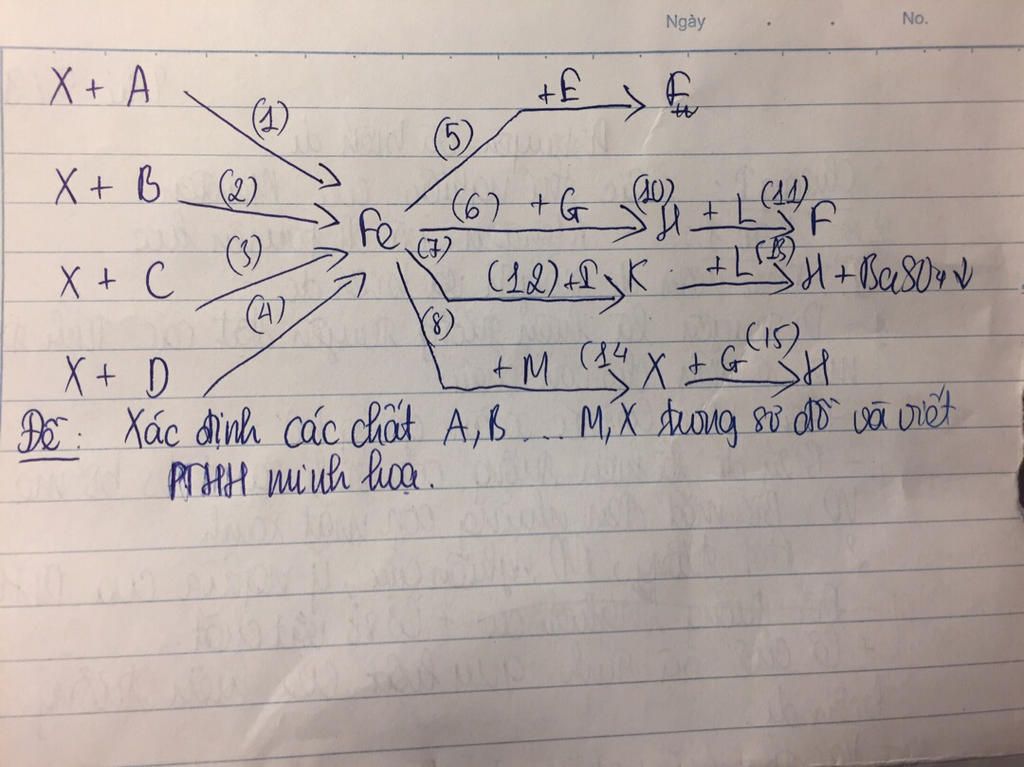 Ngày . . No.
X + A (1) (5) +E F
X + B (2) (6) + G (10) H + L (11) F
Fe
X + C (3) (7) (12) + I K + L (13) H + BaSO4↓
X + D (4) (8) + M (14 X + G (15) H
Đề: Xác định các chất A, B ... M, X trong sơ đồ và viết
PTHH minh hoạ.